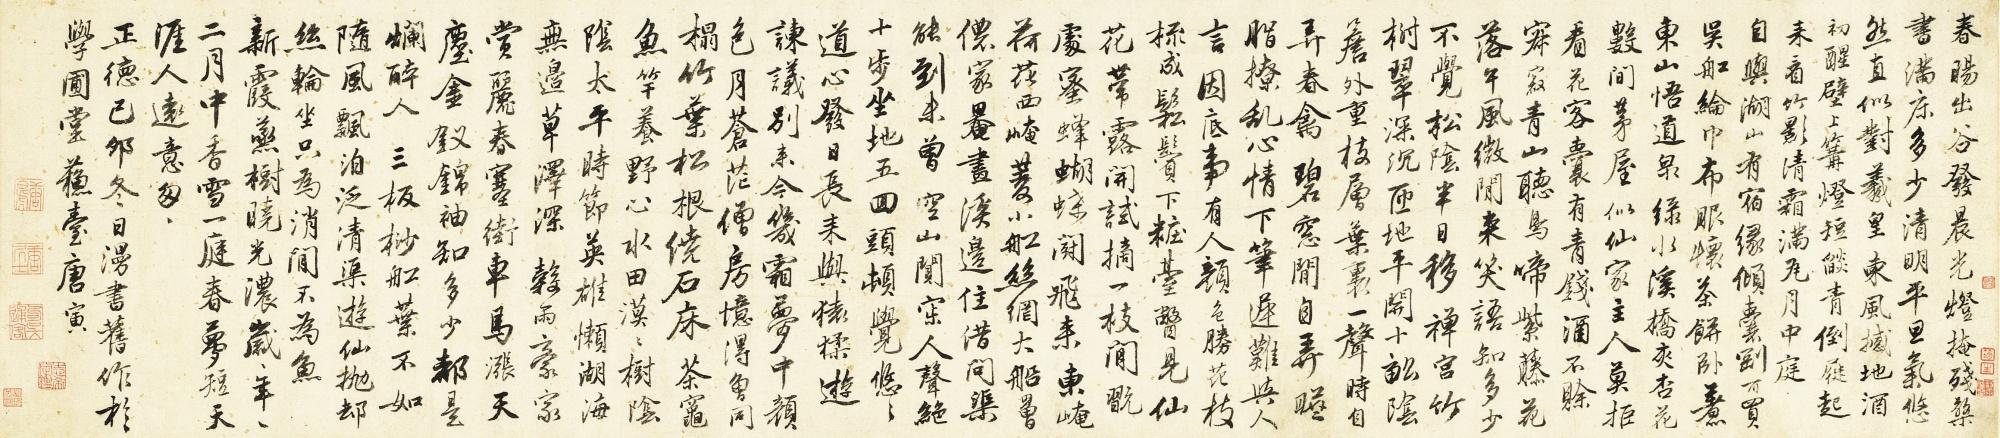 春暘出谷發晨光燈掩殘檠
書滿床多少清明平旦氣悠
然直似對羲皇東風撼地酒
初醒壁上篝燈短焰青倒屣起
來看竹影清霜滿瓦月中庭
自與湖山有宿緣傾囊剛可買
吳舡綸巾布服懷茶餅臥煮
東山悟道泉綠水溪橋夾杏花
數間茅屋似仙家主人莫拒
看花客囊有青錢酒不賒
寂寂青山聽鳥啼紫藤花
落午風微閒來笑語知多少
不覺松陰半日移禪宮竹
樹翠深沉匝地平開十畝陰
簷外重枝層葉裏一聲時自
弄春禽碧窓閒自弄
脂撩亂心情下筆遲難與人
言因底事有人顏色勝花枝
梳成鬆鬢下粧臺瞥見仙
花帶露開試摘一枝閒翫
處蜜蜂蝴蝶鬪飛來東崦
荷花西崦菱小舡絲網大船罾
儂家罨畫溪邊住借問渠
能到未曾空山闃寂人聲絕
十步坐地五回頭頓覺悠〻
道心發日長來與猿猱遊
諫議別來今幾霜夢中顏
色月蒼茫僧房憶得曾同
榻竹葉松根繞石床茶竈
魚竿養野心水田漠〻樹陰
陰太平時節英雄懶湖海
無邊草澤深穀雨豪家
賞麗春塞街車馬漲天
塵金釵錦袖知多少都是
爛醉人三板杪舡葉不如
隨風飄泊泛清渠遊仙拋却
絲輪坐只為消閒不為魚
新霞蒸樹曉光濃歲〻年〻
二月中香雪一庭春夢短天
涯人遠意匆〻
正德己卯冬日漫書舊作於
學圃堂蘇臺唐寅